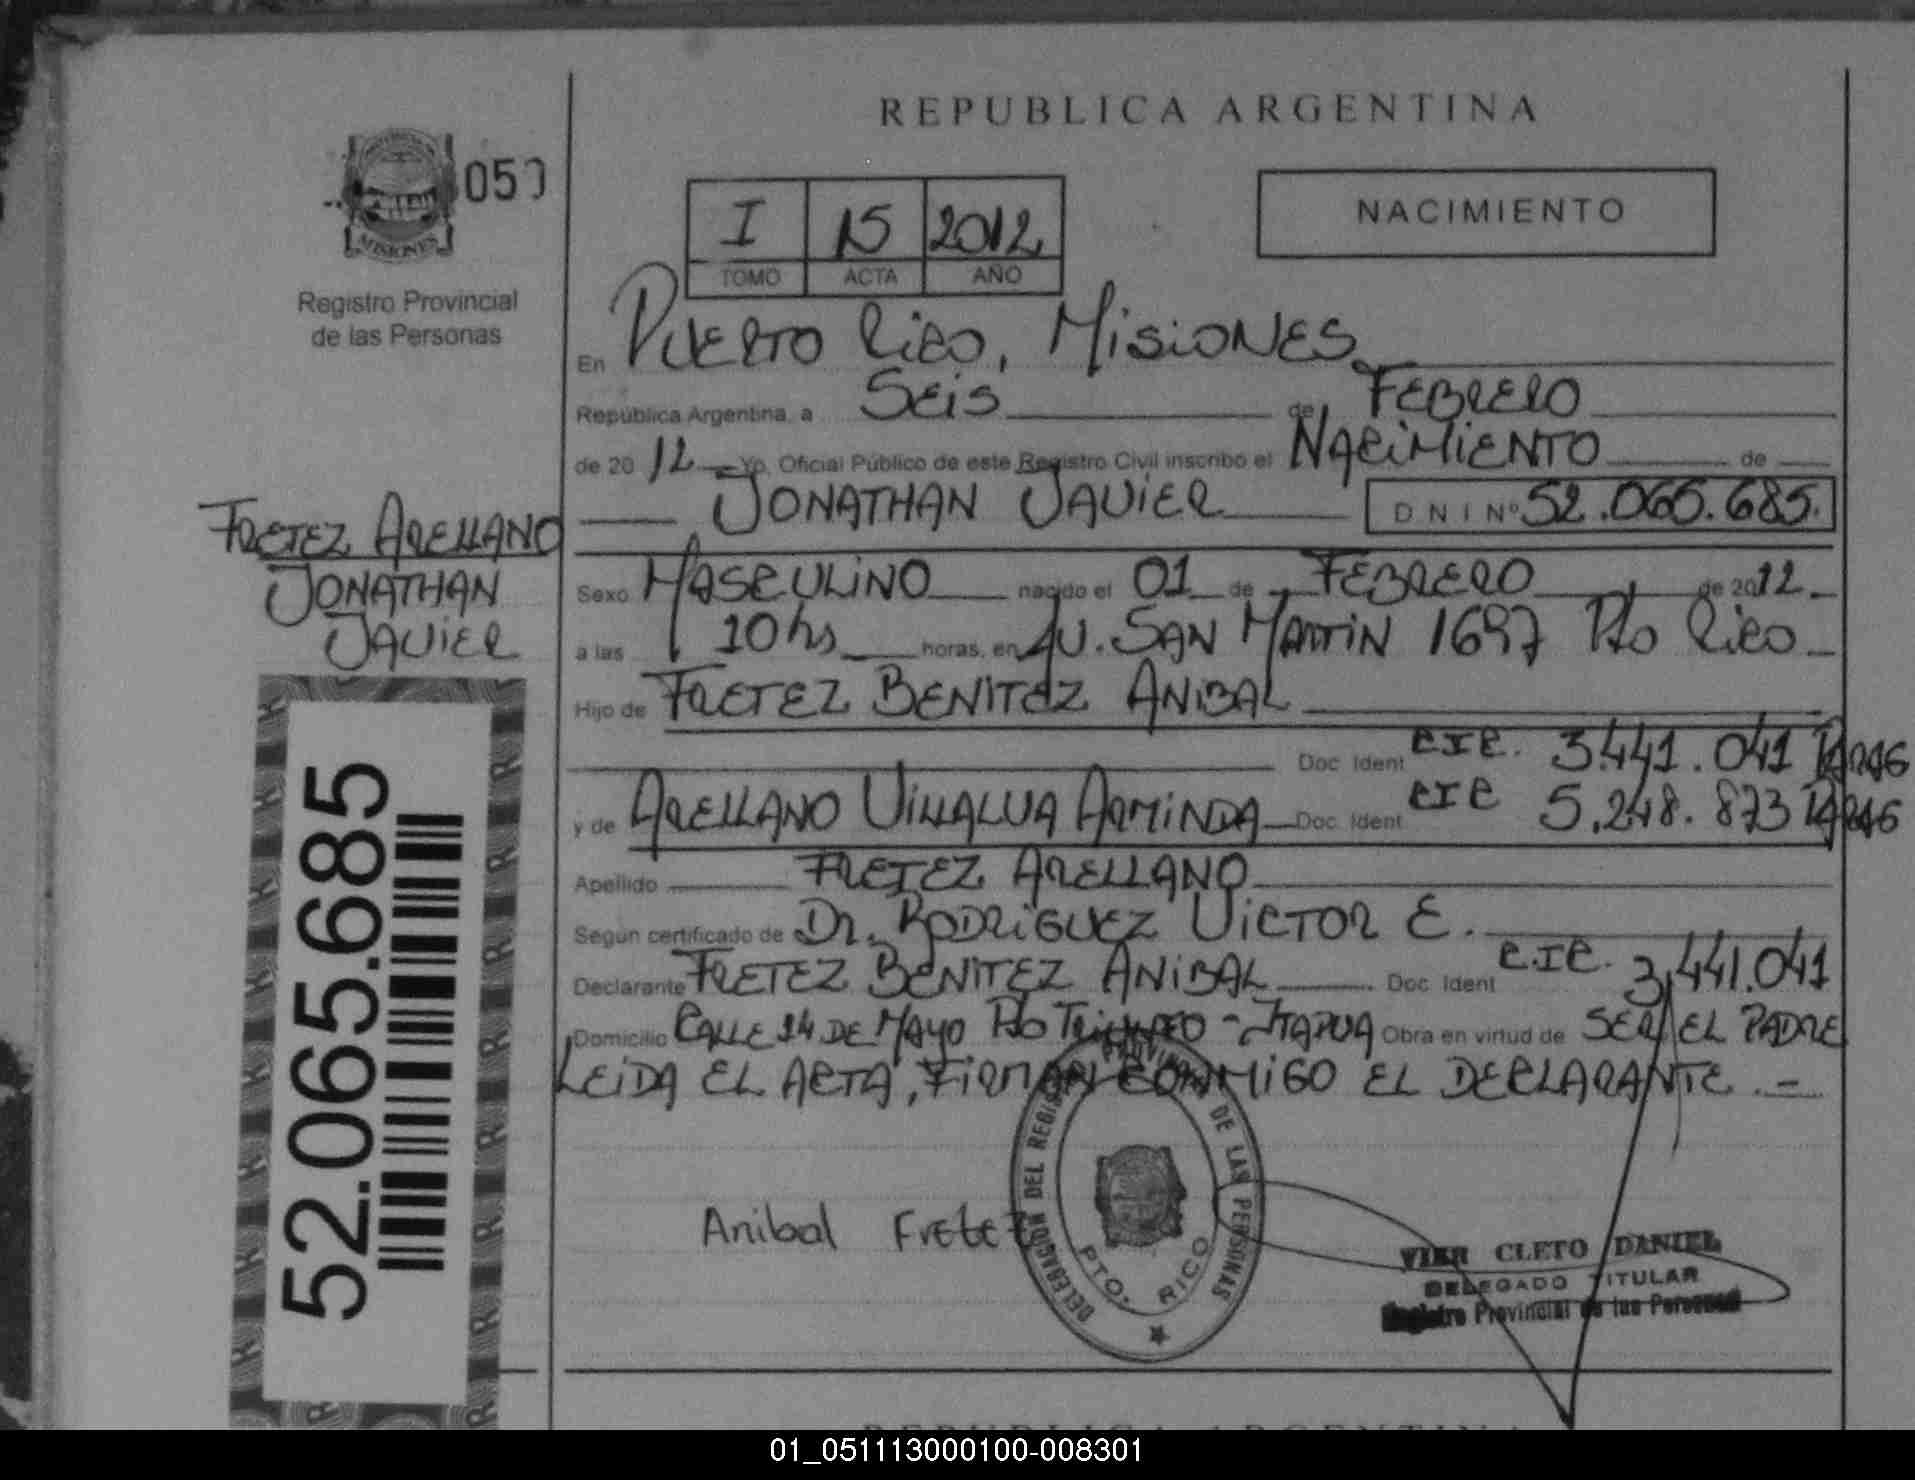 REPUBLICA ARGENTINA
MISIONES
Registro Provincial
de las Personas
I 15 2012
TOMO ACTA AÑO
NACIMIENTO
En PUERTO RICO, MISIONES
República Argentina, a SEIS de FEBRERO
de 20 12 Yo, Oficial Público de este Registro Civil inscribo el NACIMIENTO de
JONATHAN JAVIER DNI Nº 52.065.685.
FRETEZ ARELLANO
JONATHAN
JAVIER
Sexo MASCULINO nacido el 01 de FEBRERO de 2012
a las 10 hs horas, en AV. SAN MARTIN 1697 Pto RICO
Hijo de FRETEZ BENITEZ ANIBAL
Doc Ident CIC. 3.441.041
y de ARELLANO VILLALVA ARMINDA Doc. Ident CIC 5.248.873
Apellido FRETEZ ARELLANO
Según certificado de DR. RODRIGUEZ VICTOR E.
Declarante FRETEZ BENITEZ ANIBAL Doc Ident C.I.C. 3.441.041
Domicilio CALLE 14 DE MAYO Pto TRIUNFO - ITAPUA Obra en virtud de SER EL PADRE
LEIDA EL ACTA, FIRMAN CONMIGO EL DECLARANTE. -
52.065.685
Anibal Fretez
DELEGACION DEL REGISTRO PROVINCIAL DE LAS PERSONAS
PTO. RICO
VIER CLETO DANIEL
DELEGADO TITULAR
Registro Provincial de las Personas
REPUBLICA ARGENTINA
01_051113000100-008301